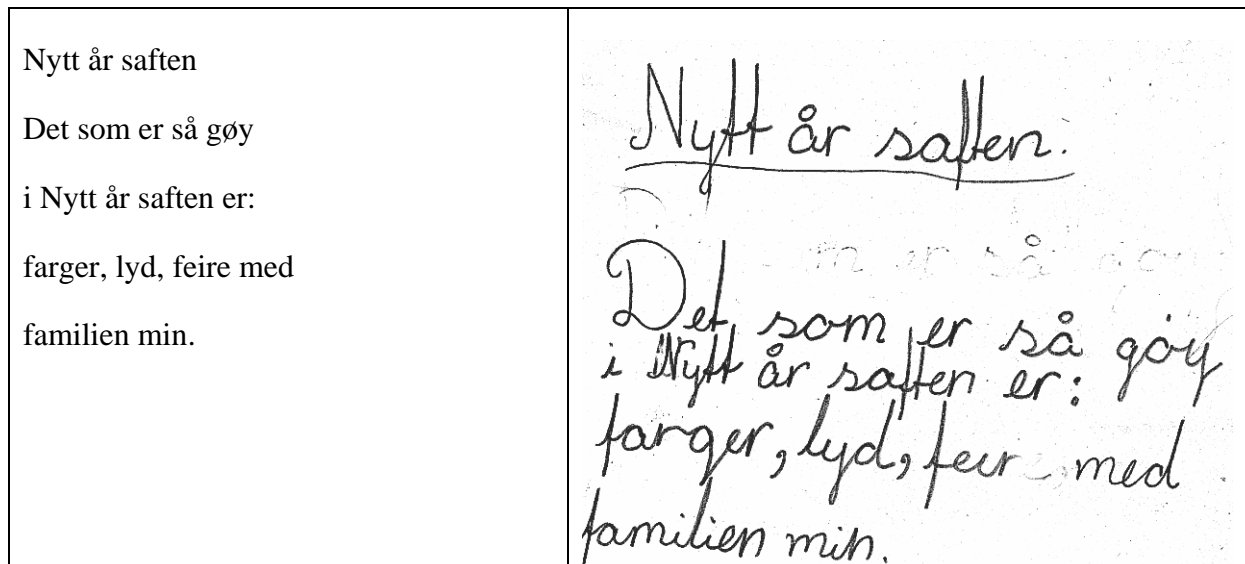 Nytt år saften
Det som er så gøy
i Nytt år saften er:
farger, lyd, feire med
familien min.
Nytt år saften.
m er så
Det som er så gøy
i Nytt år saften er:
farger, lyd, feir med
familien min.